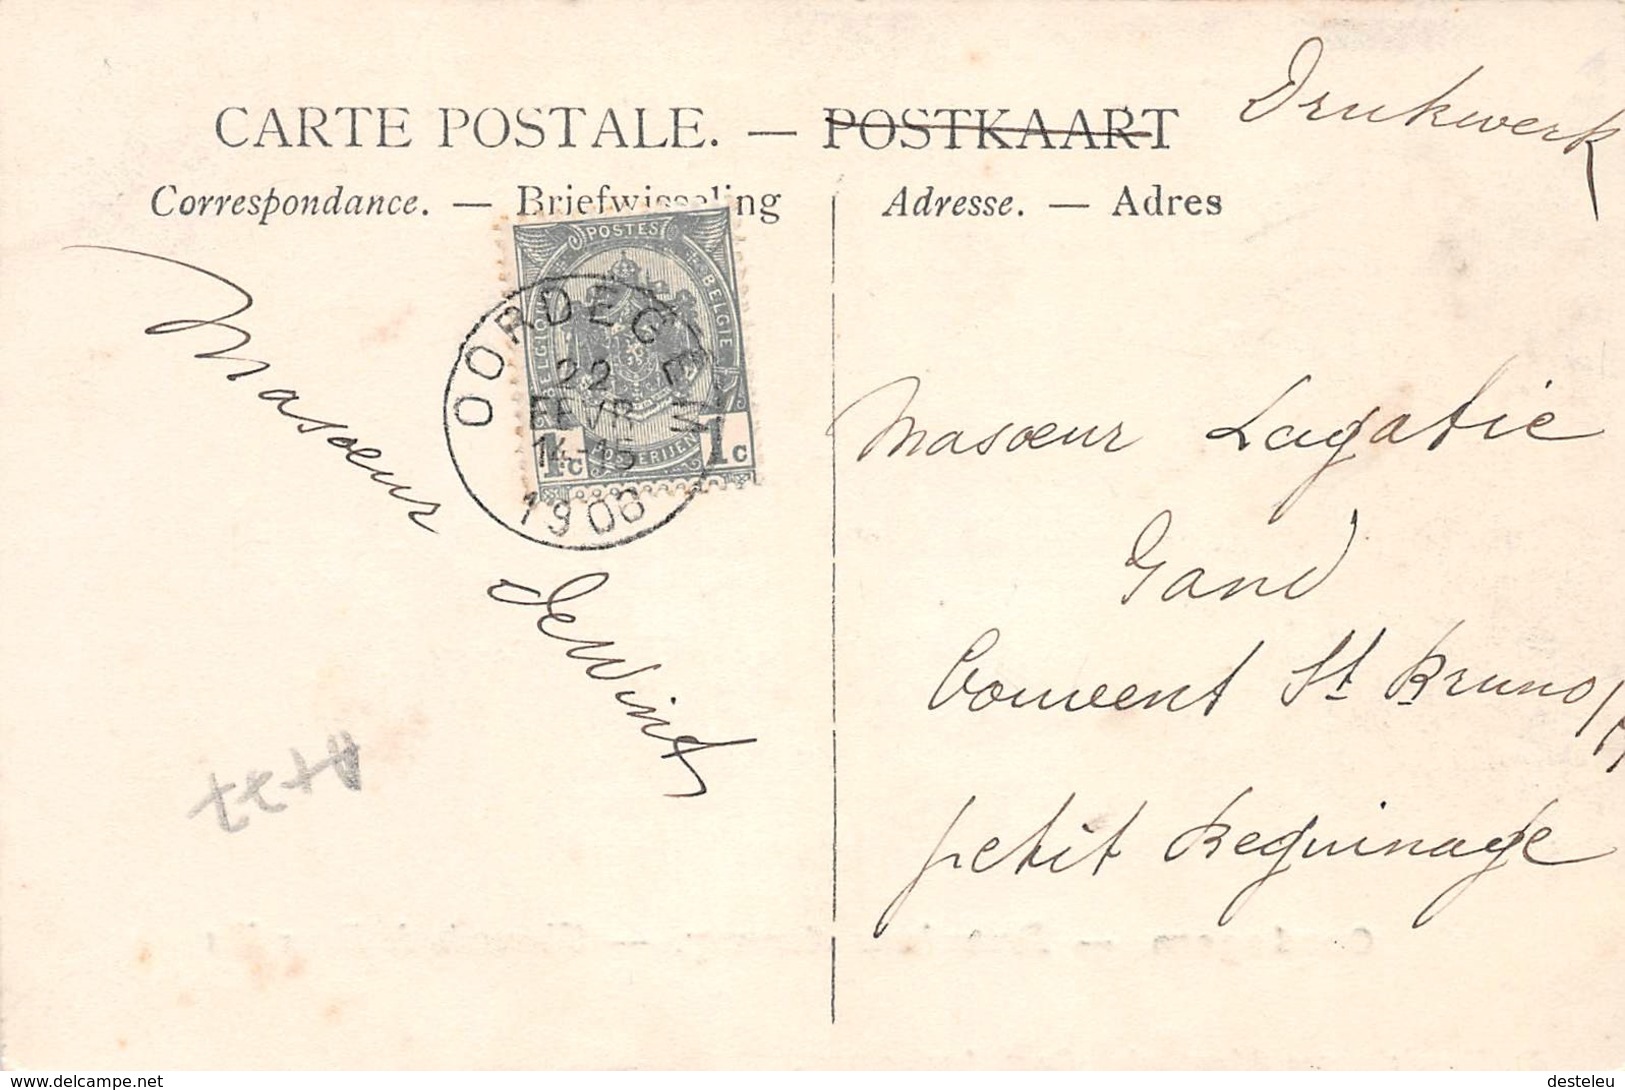 CARTE POSTALE. — POSTKAART
Drukwerk
Correspondance. — Briefwisseling
Adresse. — Adres
POSTES
BELGIQUE BELGIE
POSTERIJEN
1c 1c
OORDEGEM
22
FEVR
14-15
1908
Masœur
deWint
Masœur Lagatie
Gand
Couvent St Bruno
petit Beguinage
delcampe.net
desteleu